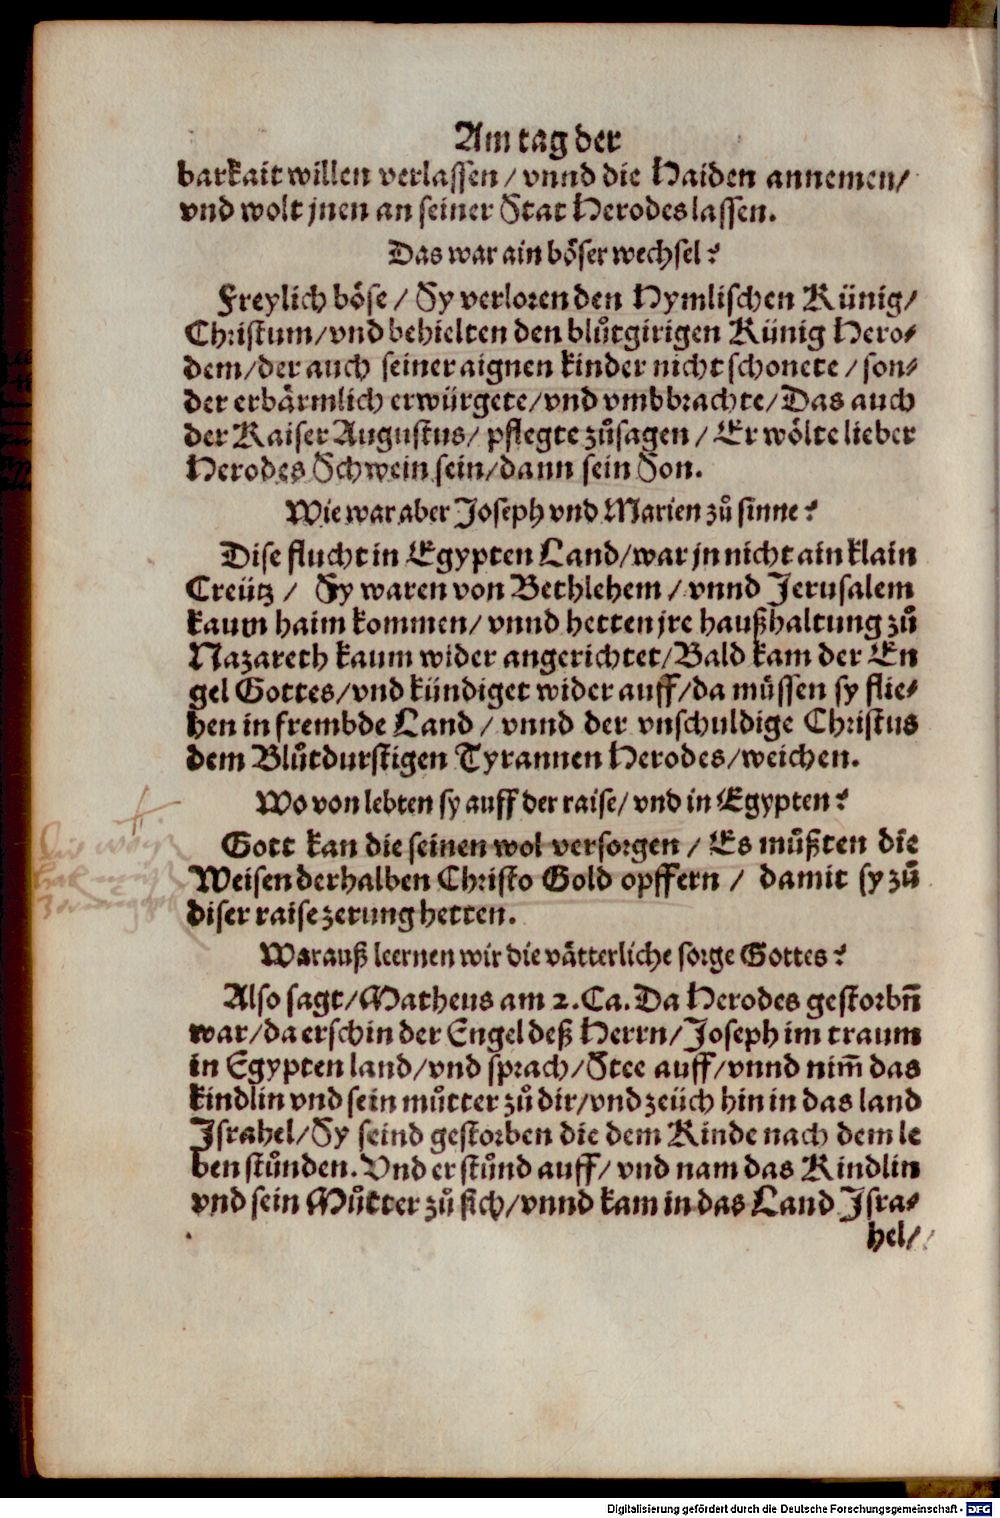 Am tag der
barkait willen verlassen / vnnd die Haiden annemen /
vnd wolt jnen an seiner Stat Herodes lassen.
Das war ain böser wechsel?
Freylich böse / Sy verloren den Hymlischen Künig /
Christum / vnd behielten den blůtgirigen Künig Hero-
dem / der auch seiner aignen kinder nicht schonete / son-
der erbärmlich erwürgete / vnd vmbbrachte / Das auch
der Kaiser Augustus / pflegte zůsagen / Er wölte lieber
Herodes Schwein sein / dann sein Son.
Wie war aber Joseph vnd Marien zů sinne?
Dise flucht in Egypten Land / war jn nicht ain klain
Creütz / Sy waren von Bethlehem / vnnd Jerusalem
kaum haim kommen / vnnd hetten jre haußhaltung zů
Nazareth kaum wider angerichtet / Bald kam der En
gel Gottes / vnd kündiget wider auff / da müssen sy flie-
hen in frembde Land / vnnd der vnschuldige Christus
dem Blůtdurstigen Tyrannen Herodes / weichen.
Wo von lebten sy auff der raise / vnd in Egypten?
Gott kan die seinen wol versorgen / Es můßten die
Weisen derhalben Christo Gold opffern / damit sy zů
diser raise zerung hetten.
Warauß leernen wir die vätterliche sorge Gottes?
Also sagt / Matheus am 2. Ca. Da Herodes gestorbn̄
war / da erschin der Engel deß Herrn / Joseph im traum
in Egypten land / vnd sprach / Stee auff / vnnd nim̄ das
kindlin vnd sein můtter zů dir / vnd zeüch hin in das land
Israhel / Sy seind gestorben die dem Kinde nach dem le
ben stůnden. Vnd er stůnd auff / vnd nam das Kindlin
vnd sein Můtter zů sich / vnnd kam in das Land Isra-
hel /
Digitalisierung gefördert durch die Deutsche Forschungsgemeinschaft - DFG